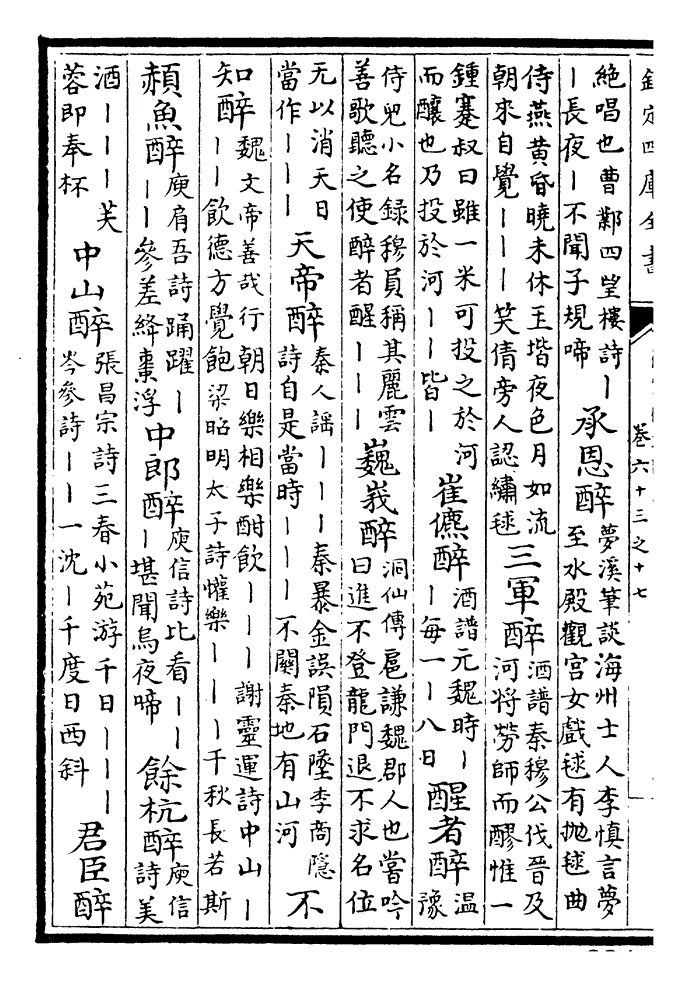 欽定四庫全書
卷六十三之十七
絶唱也曹鄴四望樓詩丨
丨長夜丨不聞子規啼
承恩醉
夢溪筆談海州士人李慎言夢
至水殿觀宫女戲毬有抛毬曲
侍燕黄昏曉未休玉堦夜色月如流
朝來自覺丨丨丨笑倩旁人認繡毬
三軍醉
酒譜秦穆公伐晉及
河將勞師而醪惟一
鍾蹇叔曰雖一米可投之於河
而釀也乃投於河丨丨皆丨
崔儦醉
酒譜元魏時丨
丨每一丨八日
醒者醉
温
豫
侍兒小名録穆員稱其麗雲
善歌聽之使醉者醒丨丨丨
巍峩醉
洞仙傳扈謙魏郡人也當吟
曰進不登龍門退不求名位
无以消天日
當作丨丨丨
天帝醉
秦人謡丨丨丨秦暴金誤隕石墜李商隱
詩自是當時丨丨丨不關秦地有山河
不
知醉
魏文帝善哉行朝日樂相樂酣飲丨丨丨謝靈運詩中山丨
丨丨飲德方覺飽梁昭明太子詩懽樂丨丨丨千秋長若斯
頳魚醉
庾肩吾詩踊躍丨
丨丨參差絳棗浮
中郎醉
庾信詩比看丨丨
丨堪聞烏夜啼
餘杭醉
庾信
詩美
酒丨丨丨芙
蓉即奉杯
中山醉
張昌宗詩三春小苑游千日丨丨丨
岑參詩丨丨一沈丨千度日西斜
君臣醉